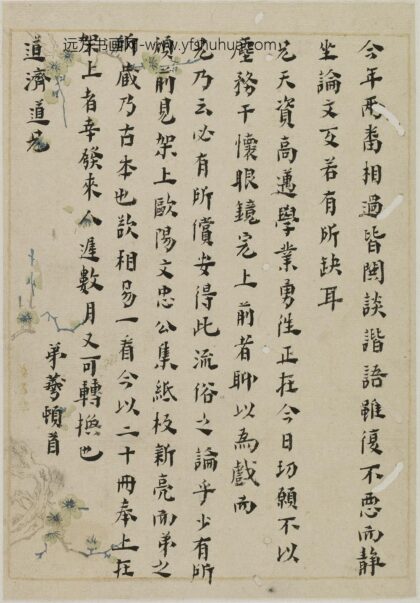 远方书画网-www.yfshuhua.com
今年兩番相過皆閒談諧語雖復不惡而靜
坐論文反若有所缺耳
兄天資高邁學業勇進正在今日切願不以
塵務干懷眼鏡完上前者聊以為戲而
兄乃云必有所償安得此流俗之論乎少有所
煩前見架上歐陽文忠公集紙板新亮而弟之
所藏乃古本也欲相易一看今以二十冊奉上在
架上者幸發來今遲數月又可轉換也
道濟道兄
弟藝頓首